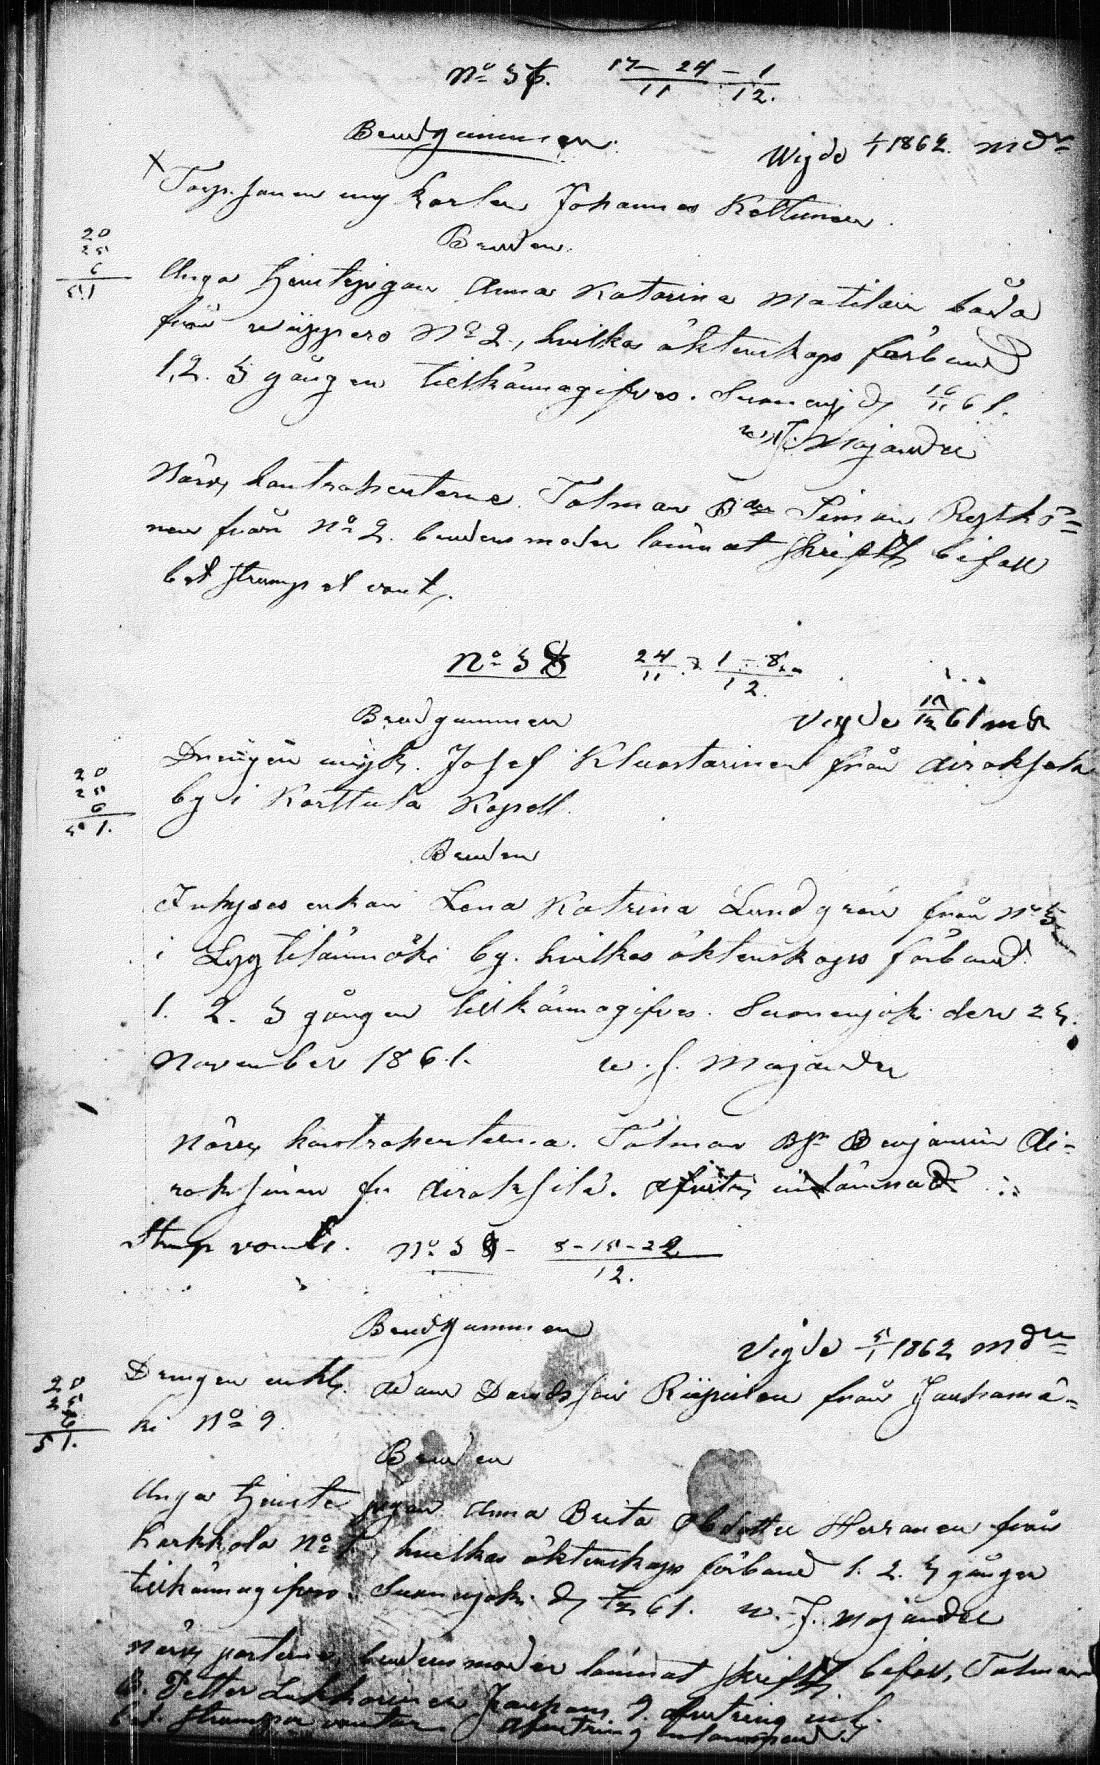 No 37. 17 – 24 – 1
11 12.
Brudgummen.
Wigde 1/1 1862. mdr
x Torp.sonen ung karlen Johannes Kettunen.
Bruden.
20
25
6
51
Unga tjenstepigan Anna Katarina Matilain båda
från No 2, hvilkas äktenskaps förbund
1, 2. 3 gången tillkännagifves. Suonenj. d. 16/11 61.
W. J. Majander
Närv. kontrahenterne. Talman Bden Simon
nen från No 2. brudens moder lämnat skriftl. bifall
bet. strump. et vant.
No 38 24 – 1 – 8
11 12.
Brudgummen
Vigde 61 mdr
20
25
6
51.
Drängen Josef Kluostarinen från Airaksela
by i Karttula Kapell.
Bruden
Inhyses enkan Lena Katrina Lundgrén från No 5
i Lyytilänmäki by. hvilkas äktenskaps förbund
1. 2. 3 gången tillkännagifves. Suonenjoki den 23.
November 1861. W. J. Majander
Närv. kontrahenterna. Talman Benjamin Ai-
raksinen fr. Airaksela. afvittr. inlämnad
Strump vant. No 39 – 8 – 15 – 22
12.
Brudgummen
Vigde 5/1 1862 mdr
20
25
6
51.
Drengen enkl. Adam Davidsson från Jauhomä-
ki No 9.
Bruden
Unga tjenste pigan Anna Brita Olsdotter Herranen från
Karkkola No 1, hvilkas äktenskaps förbund 1. 2. 3 gången
tillkännagifves. Suonenjoki d. 7/12 61. W. J. Majander
Närv. parterne, brudens moder lämnat skriftl. bifall, Talman
B. Petter 9. afvittring inl.
bet. strumpor vantar. afvittring